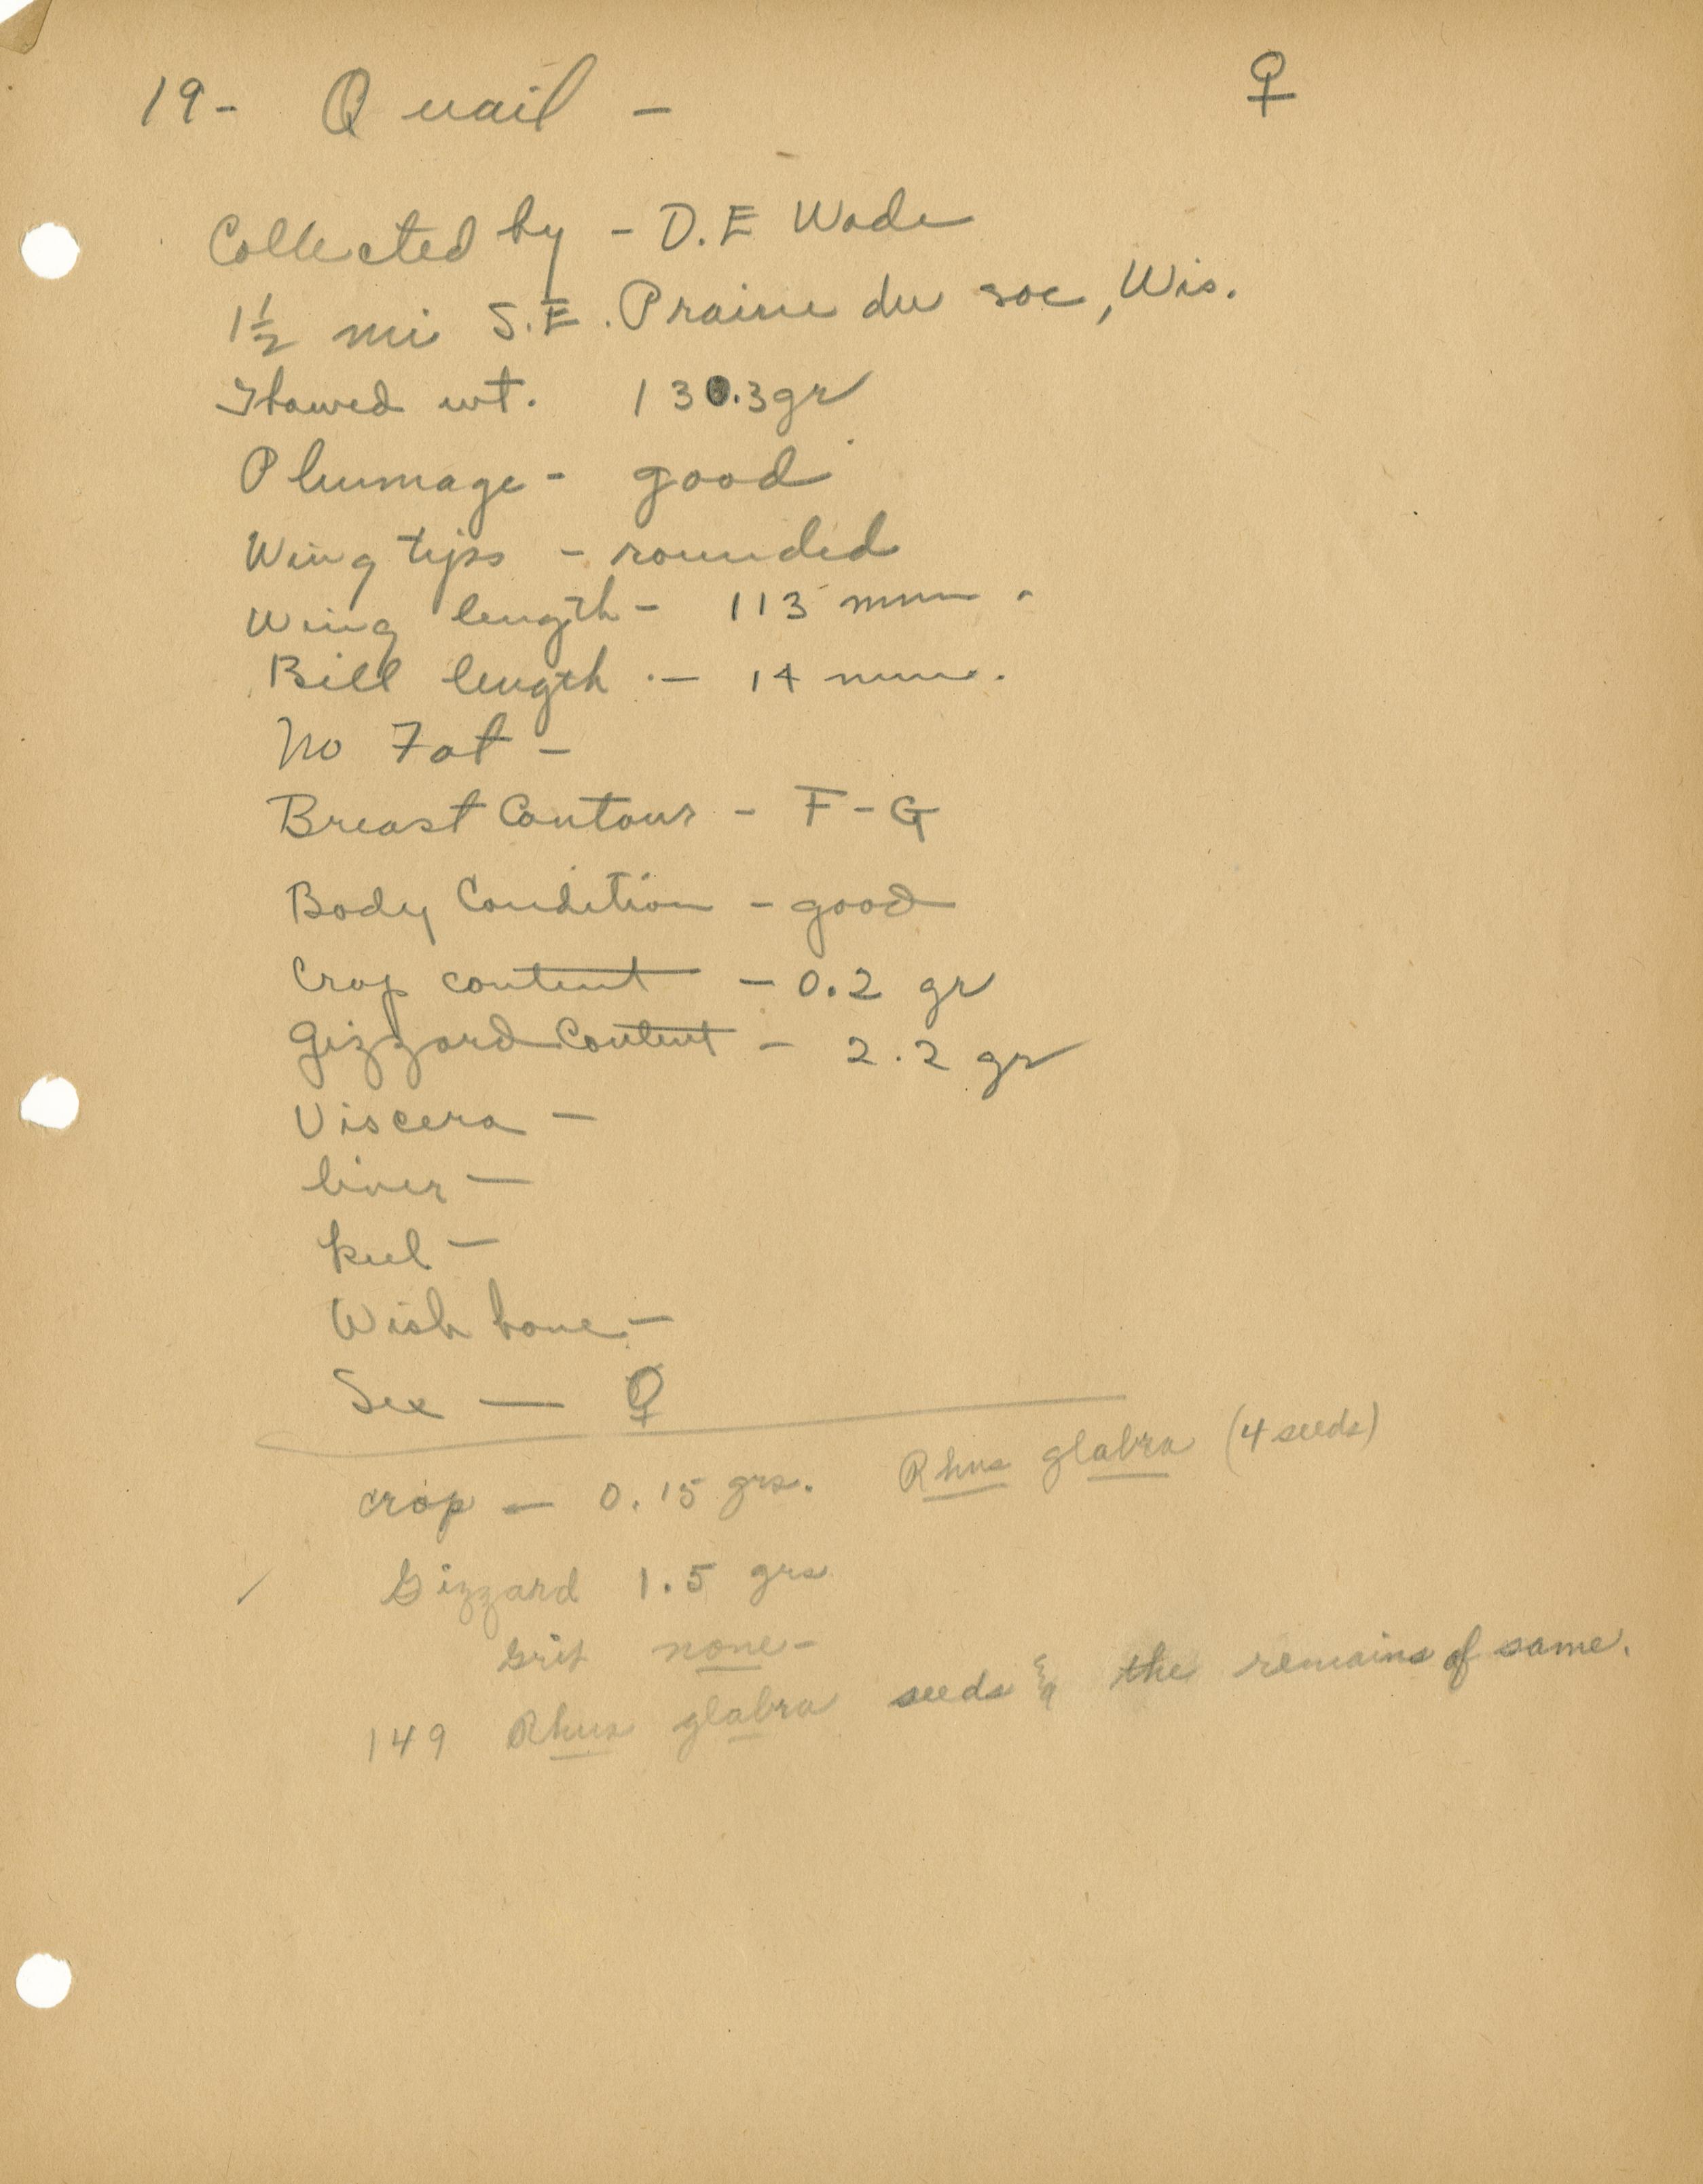 19 - Quail - ♀
Collected by - D.E Wade
1½ mi S.E. Prairie du soc, Wis.
Thawed wt. 130.3 gr
Plummage - good
Wing tips - rounded
Wing length - 113 mm.
Bill length - 14 mm.
No Fat -
Breast Contour - F-G
Body Condition - good
Crop content - 0.2 gr
Gizzard Content - 2.2 gr
Viscera -
liver -
keel -
Wish bone -
Sex - ♀
crop - 0.15 grs. Rhus glabra (4 seeds)
Gizzard 1.5 grs
Grit none -
149 Rhus glabra seeds & the remains of same.